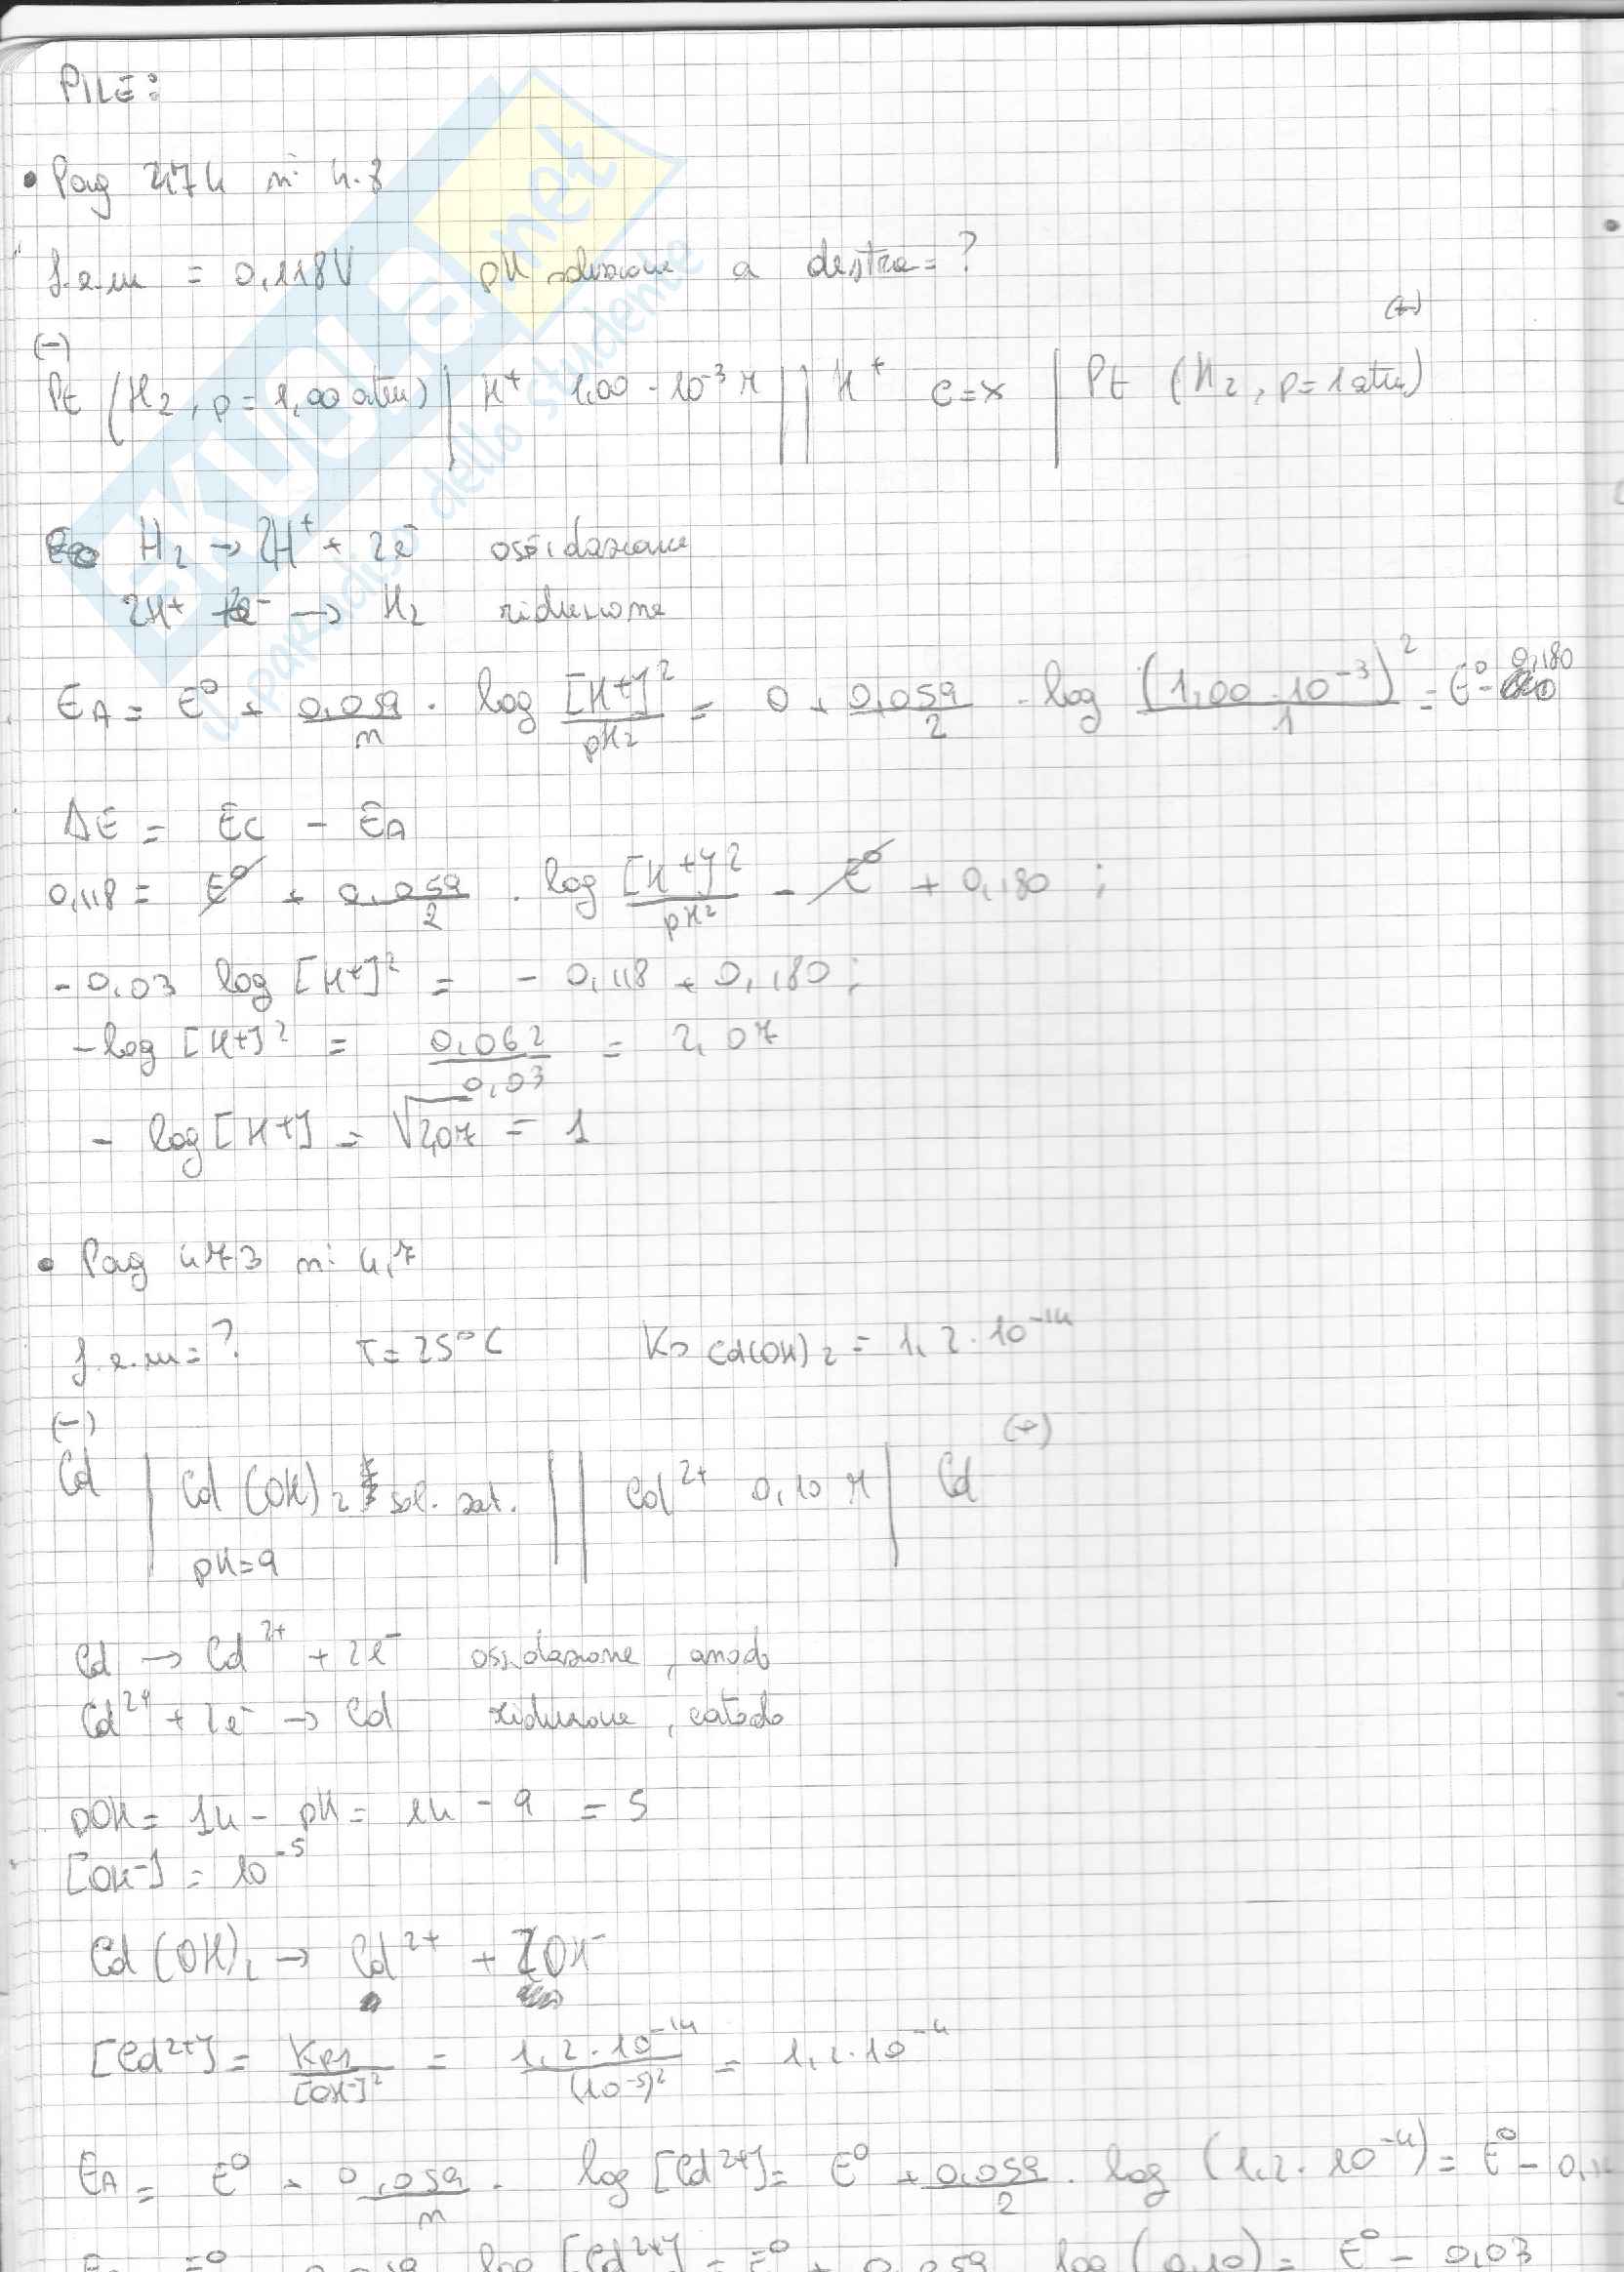 PILE:
• Pag 474 n° 4.8
f.e.m = 0,118V pH soluzione a destra = ?
(-) (+)
Pt (H2, p = 1,00 atm) | H+ 1,00 · 10^-3 M || H+ c=x | Pt (H2, p = 1 atm)
H2 → 2H+ + 2e- ossidazione
2H+ + 2e- → H2 riduzione
EA = E° + 0,059/n · log [H+]^2/pH2 = 0 + 0,059/2 · log (1,00·10^-3)^2/1 = E° - 0,180
ΔE = Ec - EA
0,118 = E° + 0,059/2 · log [H+]^2/pH2 - E° + 0,180 ;
- 0,03 log [H+]^2 = - 0,118 + 0,180 ;
- log [H+]^2 = 0,062/0,03 = 2,07
- log [H+] = √2,07 = 1
• Pag 473 n: 4,7
f.e.m = ? T = 25°C Ks Cd(OH)2 = 1,2 · 10^-14
(-) (+)
Cd | Cd(OH)2 sol. sat. || Cd2+ 0,10 M | Cd
pH=9
Cd → Cd2+ + 2e- ossidazione, anodo
Cd2+ + 2e- → Cd riduzione, catodo
pOH = 14 - pH = 14 - 9 = 5
[OH-] = 10^-5
Cd(OH)2 → Cd2+ + 2OH-
[Cd2+] = Kps/[OH-]^2 = 1,2 · 10^-14/(10^-5)^2 = 1,2 · 10^-4
EA = E° + 0,059/n · log [Cd2+] = E° + 0,059/2 · log (1,2 · 10^-4) = E° - 0,1
log [Cd2+] = E° + 0,059 log (0,10) = E° - 0,03